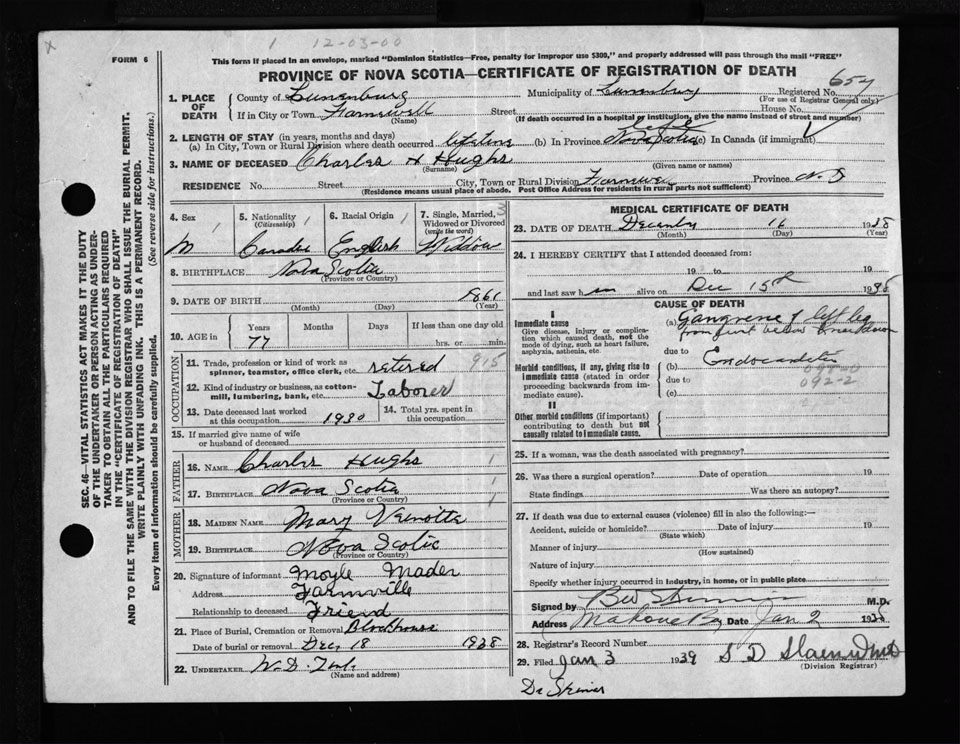 x 1 12-03-00
FORM 6 This form if placed in an envelope, marked "Dominion Statistics—Free, penalty for improper use $300," and properly addressed will pass through the mail "FREE"
PROVINCE OF NOVA SCOTIA—CERTIFICATE OF REGISTRATION OF DEATH
654
1. PLACE OF DEATH County of Lunenburg Municipality of Lunenburg Registered No.
(For use of Registrar General only)
If in City or Town Street House No.
(Name) (If death occurred in a hospital or institution, give name instead of street and number)
2. LENGTH OF STAY (in years, months and days)
(a) In City, Town or Rural Division where death occurred lifetime (b) In Province Nova Scotia (c) In Canada (if immigrant)
3. NAME OF DECEASED Charles H Hughs
(Surname) (Given name or names)
RESIDENCE No. Street City, Town or Rural Division Province N.S
(Residence means usual place of abode. Post Office Address for residents in rural parts not sufficient)
4. Sex 5. Nationality (Citizenship) 6. Racial Origin 7. Single, Married, Widowed or Divorced (write the word)
1 1 1 3
M English Widdow
8. BIRTHPLACE Nova Scotia
(Province or Country)
9. DATE OF BIRTH 1861
(Month) (Day) (Year)
10. AGE in Years Months Days If less than one day old
77 hrs. or min.
OCCUPATION
11. Trade, profession or kind of work as spinner, teamster, office clerk, etc. retired 915
12. Kind of industry or business, as cotton-mill, lumbering, bank, etc. Laborer
13. Date deceased last worked at this occupation 1930 14. Total yrs. spent in this occupation
15. If married give name of wife or husband of deceased
FATHER
16. NAME Charles Hughs 1
17. BIRTHPLACE Nova Scotia 1
(Province or Country)
MOTHER
18. MAIDEN NAME Mary Veinotte
19. BIRTHPLACE Nova Scotia
(Province or Country)
20. Signature of informant Moyle Mader
Address Farmville
Relationship to deceased Friend
21. Place of Burial, Cremation or Removal Blockhouse
Date of burial or removal Dec 18 1938
22. UNDERTAKER W.D.
(Name and address)
MEDICAL CERTIFICATE OF DEATH
23. DATE OF DEATH 16 1938
(Month) (Day) (Year)
24. I HEREBY CERTIFY that I attended deceased from:
19 to 19
and last saw h im alive on Dec 15th 1938
CAUSE OF DEATH
I
Immediate cause
Give disease, injury or complication which caused death, not the mode of dying, such as heart failure, asphyxia, asthenia, etc.
(a) Gangrene of left leg
from
due to
Morbid conditions, if any, giving rise to immediate cause (stated in order proceeding backwards from immediate cause).
(b)
due to 092-2
(c)
II
Other morbid conditions (if important) contributing to death but not causally related to immediate cause.
25. If a woman, was the death associated with pregnancy?
26. Was there a surgical operation? Date of operation 19
State findings Was there an autopsy?
27. If death was due to external causes (violence) fill in also the following:—
Accident, suicide or homicide? Date of injury 19
(State which)
Manner of injury
(How sustained)
Nature of injury
Specify whether injury occurred in industry, in home, or in public place
Signed by M.D.
Address Mahone Bay Date Jan 2 19
28. Registrar's Record Number
29. Filed Jan 3 1939 S D
(Division Registrar)
Dr Skinner
SEC. 46—VITAL STATISTICS ACT MAKES IT THE DUTY
OF THE UNDERTAKER OR PERSON ACTING AS UNDER-
TAKER TO OBTAIN ALL THE PARTICULARS REQUIRED
IN THE "CERTIFICATE OF REGISTRATION OF DEATH"
AND TO FILE THE SAME WITH THE DIVISION REGISTRAR WHO SHALL ISSUE THE BURIAL PERMIT.
WRITE PLAINLY WITH UNFADING INK. THIS IS A PERMANENT RECORD.
Every item of information should be carefully supplied. (See reverse side for instructions.)